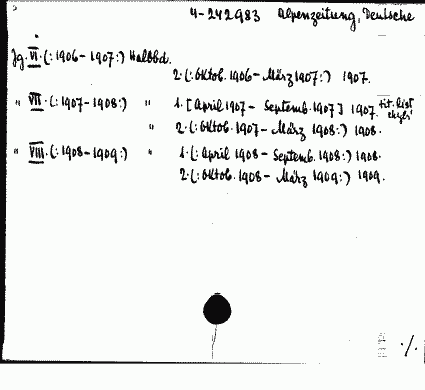 4-242983 Alpenzeitung, Deutsche
Jg. VI. (: 1906-1907:) Halbbd.
2. (: Oktob. 1906 - März 1907:) 1907.
" VII. (: 1907-1908:) " 1. [April 1907 - Septemb. 1907] 1907. tit. list
" 2. (: Oktob. 1907 - März 1908:) 1908.
" VIII. (: 1908-1909:) " 1. (: April 1908 - Septemb. 1908:) 1908.
2. (: Oktob. 1908 - März 1909:) 1909.
./.